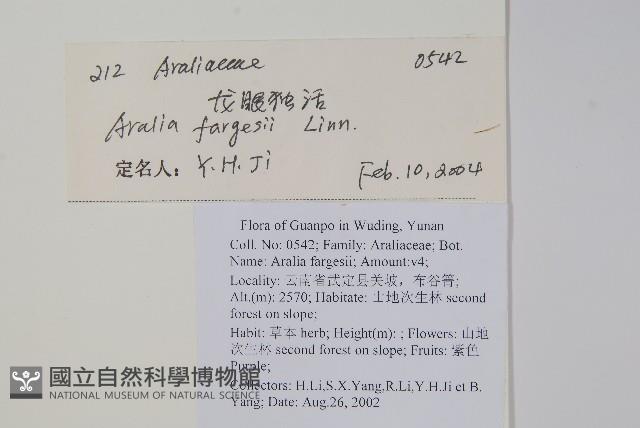 212 Araliaceae 0542
龙眼独活
Aralia fargesii Linn.
定名人: Y.H.Ji Feb.10,2004
Flora of Guanpo in Wuding, Yunan
Coll. No: 0542; Family: Araliaceae; Bot.
Name: Aralia fargesii; Amount:v4;
Locality: 云南省武定县关坡，布谷箐;
Alt.(m): 2570; Habitate: 山地次生林 second
forest on slope;
Habit: 草本 herb; Height(m): ; Flowers: 山地
次生林 second forest on slope; Fruits: 紫色
Purple;
Collectors: H.Li,S.X.Yang,R.Li,Y.H.Ji et B.
Yang; Date: Aug.26, 2002
國立自然科學博物館
NATIONAL MUSEUM OF NATURAL SCIENCE